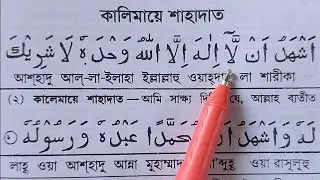 কালিমায়ে শাহাদাত
اَشْهَدُ اَنْ لَّاۤ اِلٰهَ اِلَّا اللّٰهُ وَحْدَهٗ لَا شَرِيْكَ
আশ্হাদু আল্-লা-ইলাহা ইল্লাল্লাহু ওয়াহ্দাহূ লা শারীকা
(২) কালেমায়ে শাহাদাত — আমি সাক্ষ্য দিতেছি যে, আল্লাহ ব্যতীত
لَهٗ وَاَشْهَدُ اَنَّ مُحَمَّدًا عَبْدُهٗ وَرَسُوْلُهٗ
লাহূ ওয়া আশ্হাদু আন্না মুহাম্মাদান আ'ব্দুহূ ওয়া রাসূলুহূ